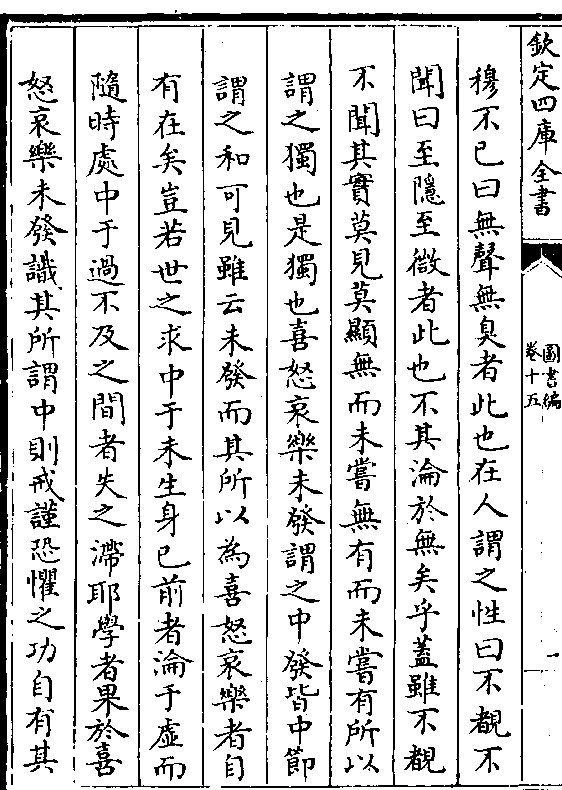 欽定四庫全書
圖書編
卷十五
穆不已曰無聲無臭者此也在人謂之性曰不覩不
聞曰至隱至微者此也不其淪於無矣乎蓋雖不覩
不聞其實莫見莫顯無而未嘗無有而未嘗有所以
謂之獨也是獨也喜怒哀樂未發謂之中發皆中節
謂之和可見雖云未發而其所以為喜怒哀樂者自
有在矣豈若世之求中于未生身已前者淪于虛而
隨時處中于過不及之間者失之滯耶學者果於喜
怒哀樂未發識其所謂中則戒謹恐懼之功自有其